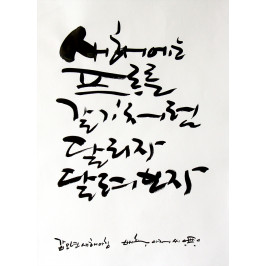 새해에는
푸르른
갈기처럼
달리자
달려보자
갑오년 새해아침